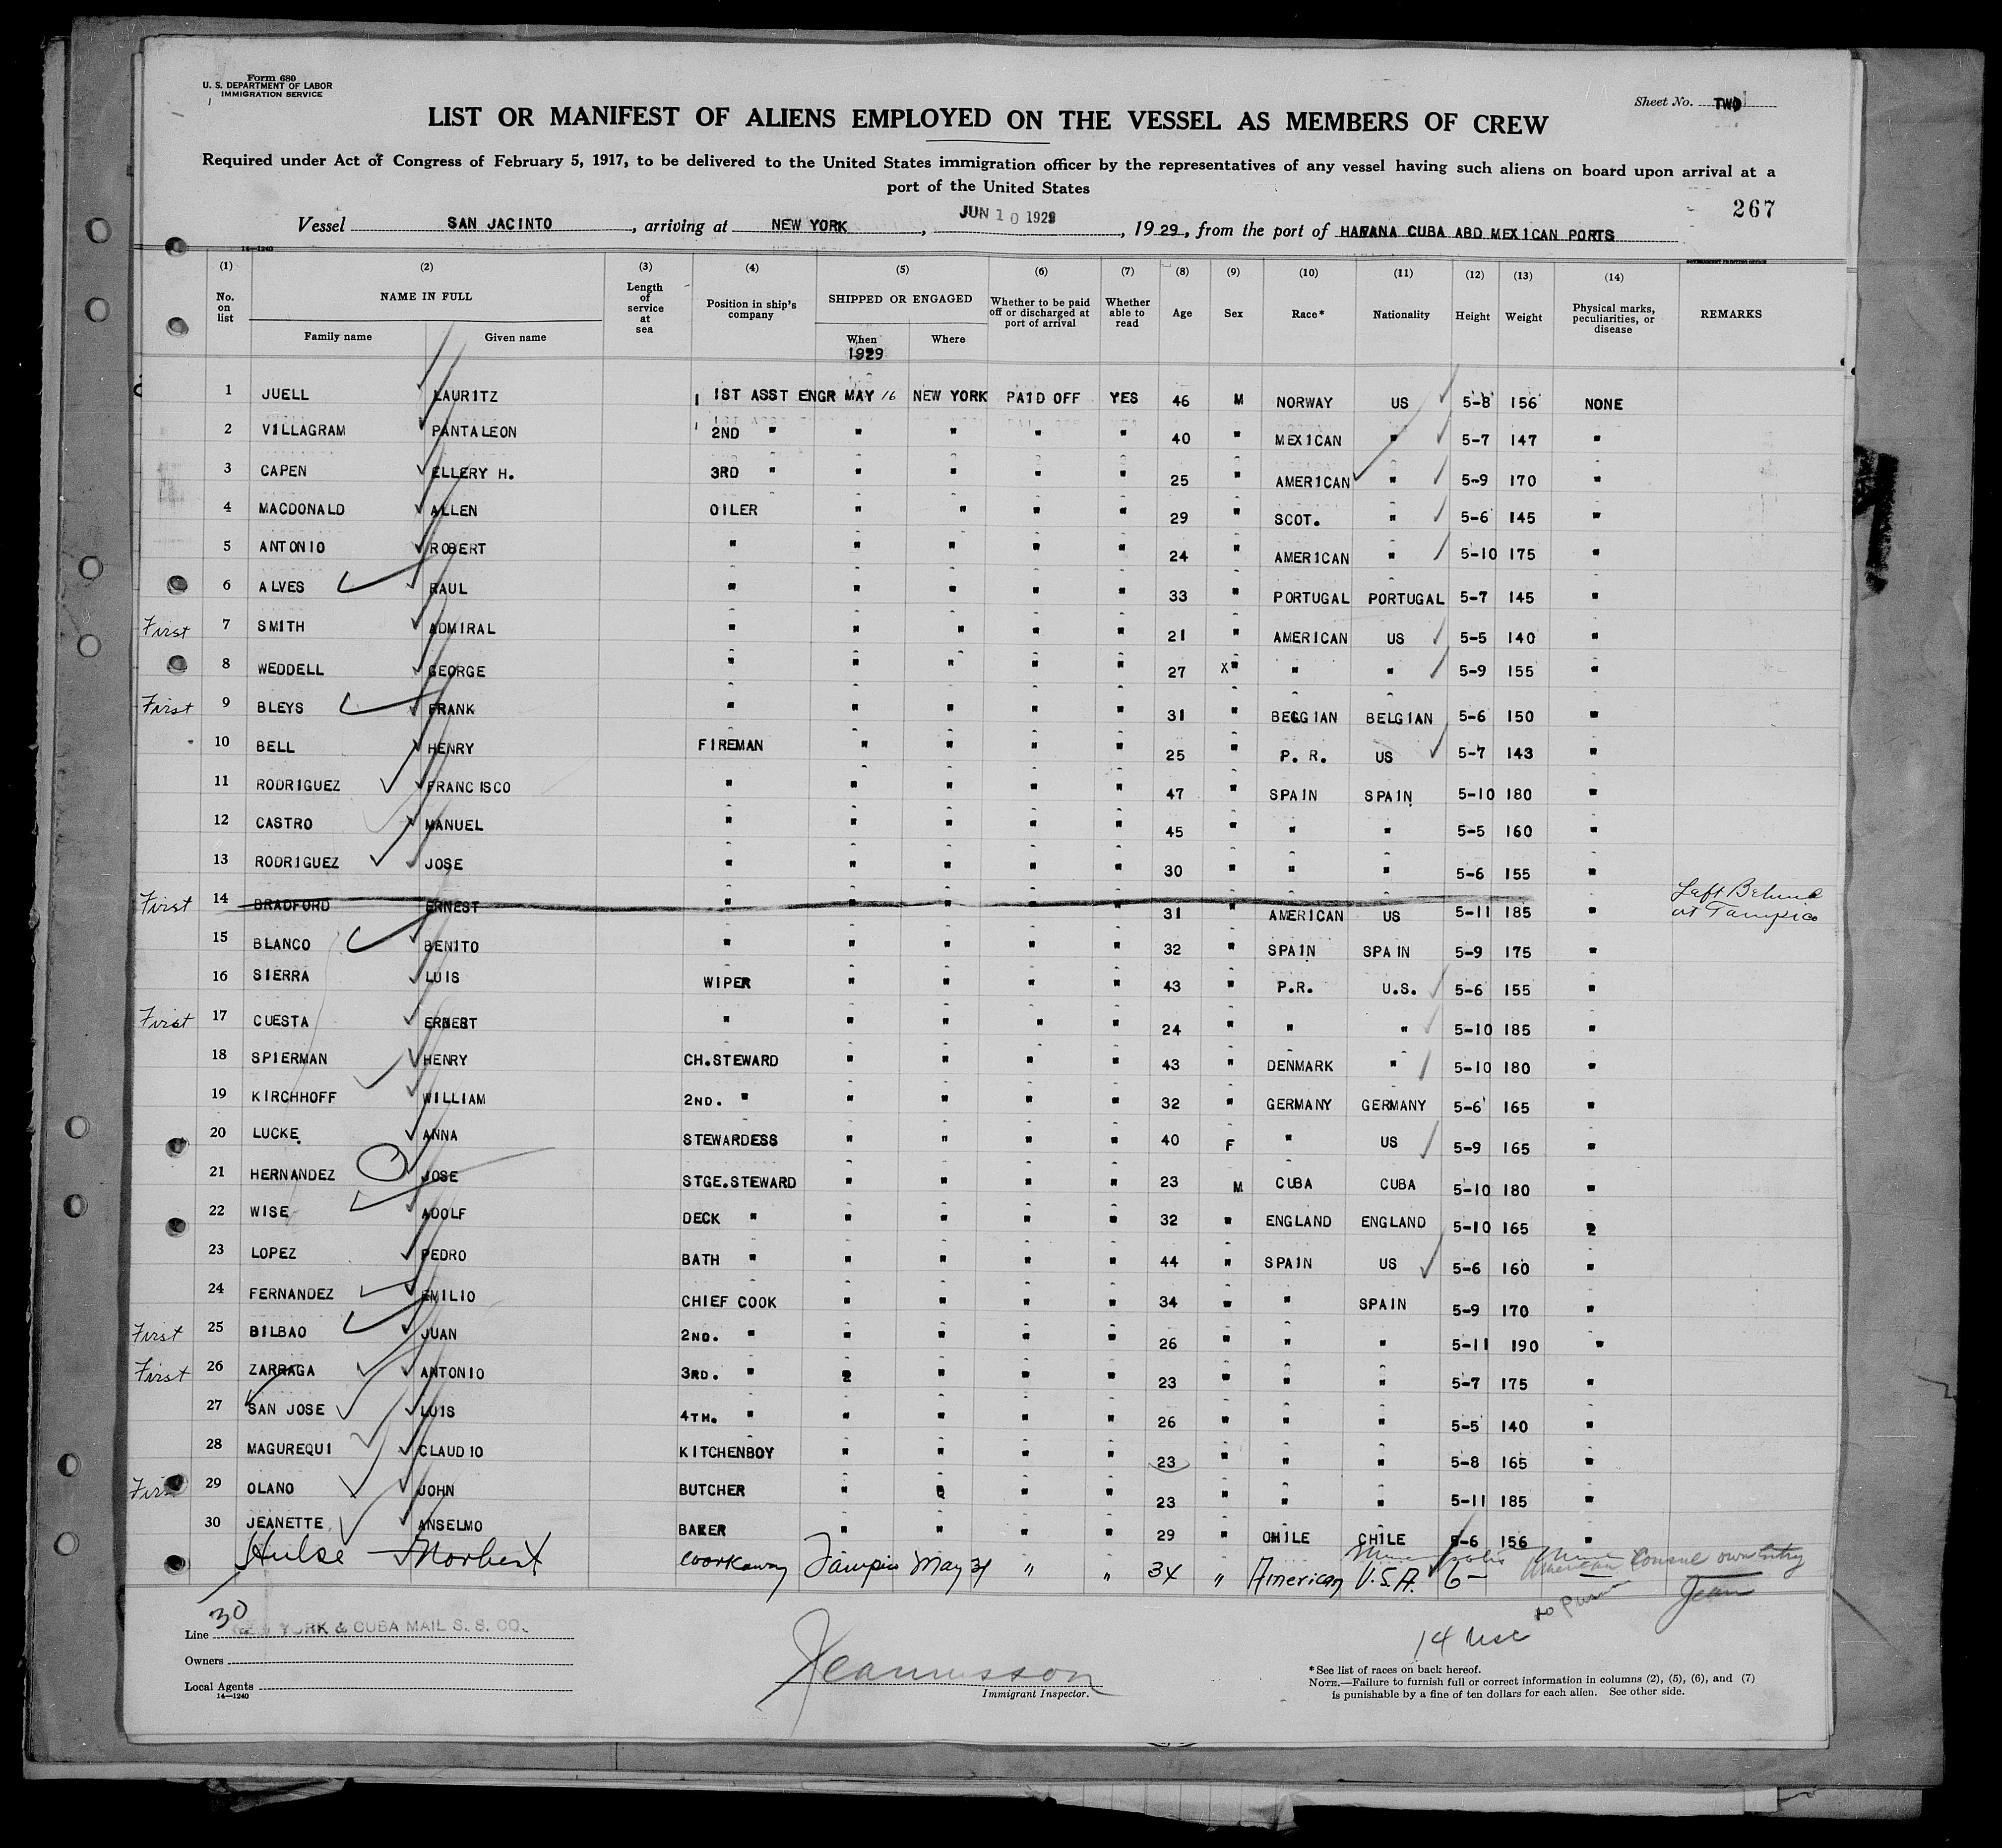 Form 680
U. S. DEPARTMENT OF LABOR
IMMIGRATION SERVICE
Sheet No. TWO
LIST OR MANIFEST OF ALIENS EMPLOYED ON THE VESSEL AS MEMBERS OF CREW
Required under Act of Congress of February 5, 1917, to be delivered to the United States immigration officer by the representatives of any vessel having such aliens on board upon arrival at a
port of the United States
267
Vessel SAN JACINTO, arriving at NEW YORK, JUN 10 1929, 1929, from the port of HAVANA CUBA ABD MEXICAN PORTS
14—1240 GOVERNMENT PRINTING OFFICE
(1) (2) (3) (4) (5) (6) (7) (8) (9) (10) (11) (12) (13) (14)
No. on list NAME IN FULL Family name Given name Length of service at sea Position in ship's company SHIPPED OR ENGAGED When Where Whether to be paid off or discharged at port of arrival Whether able to read Age Sex Race* Nationality Height Weight Physical marks, peculiarities, or disease REMARKS
1929
1 JUELL LAURITZ 1ST ASST ENGR MAY 16 NEW YORK PAID OFF YES 46 M NORWAY US 5-8 156 NONE
2 VILLAGRAM PANTALEON 2ND " " " " " 40 " MEXICAN " 5-7 147 "
3 CAPEN ELLERY H. 3RD " " " " " 25 " AMERICAN " 5-9 170 "
4 MACDONALD ALLEN OILER " " " " 29 " SCOT. " 5-6 145 "
5 ANTONIO ROBERT " " " " " 24 " AMERICAN " 5-10 175 "
6 ALVES RAUL " " " " " 33 " PORTUGAL PORTUGAL 5-7 145 "
First 7 SMITH ADMIRAL " " " " " 21 " AMERICAN US 5-5 140 "
8 WEDDELL GEORGE " " " " " 27 X" " " 5-9 155 "
First 9 BLEYS FRANK " " " " " 31 " BELGIAN BELGIAN 5-6 150 "
10 BELL HENRY FIREMAN " " " " 25 " P. R. US 5-7 143 "
11 RODRIGUEZ FRANCISCO " " " " " 47 " SPAIN SPAIN 5-10 180 "
12 CASTRO MANUEL " " " " " 45 " " " 5-5 160 "
13 RODRIGUEZ JOSE " " " " " 30 " " " 5-6 155 "
First 14 BRADFORD ERNEST " " " " " 31 " AMERICAN US 5-11 185 " Left Behind at Tampico
15 BLANCO BENITO " " " " " 32 " SPAIN SPAIN 5-9 175 "
16 SIERRA LUIS WIPER " " " " 43 " P.R. U.S. 5-6 155 "
First 17 CUESTA ERNEST " " " " " 24 " " " 5-10 185 "
18 SPIERMAN HENRY CH.STEWARD " " " " 43 " DENMARK " 5-10 180 "
19 KIRCHHOFF WILLIAM 2ND. " " " " " 32 " GERMANY GERMANY 5-6 165 "
20 LUCKE ANNA STEWARDESS " " " " 40 F " US 5-9 165 "
21 HERNANDEZ JOSE STGE.STEWARD " " " " 23 M CUBA CUBA 5-10 180 "
22 WISE ADOLF DECK " " " " " 32 " ENGLAND ENGLAND 5-10 165 2
23 LOPEZ PEDRO BATH " " " " " 44 " SPAIN US 5-6 160 "
24 FERNANDEZ EMILIO CHIEF COOK " " " " 34 " " SPAIN 5-9 170 "
First 25 BILBAO JUAN 2ND. " " " " " 26 " " " 5-11 190 "
First 26 ZARRAGA ANTONIO 3RD. " 2 " " " 23 " " " 5-7 175 "
27 SAN JOSE LUIS 4TH. " " " " " 26 " " " 5-5 140 "
28 MAGUREQUI CLAUDIO KITCHENBOY " " " " 23 " " " 5-8 165 "
First 29 OLANO JOHN BUTCHER " " " " 23 " " " 5-11 185 "
30 JEANETTE ANSELMO BAKER " " " " 29 " CHILE CHILE 5-6 156 "
Hulse Norbert Workaway Tampico May 31 " " 34 " American U.S.A. 6- American Consul own Entry
30
to
14 USC
Line NEW YORK & CUBA MAIL S. S. CO.
Owners
Local Agents
14—1240
Immigrant Inspector.
*See list of races on back hereof.
NOTE.—Failure to furnish full or correct information in columns (2), (5), (6), and (7)
is punishable by a fine of ten dollars for each alien. See other side.